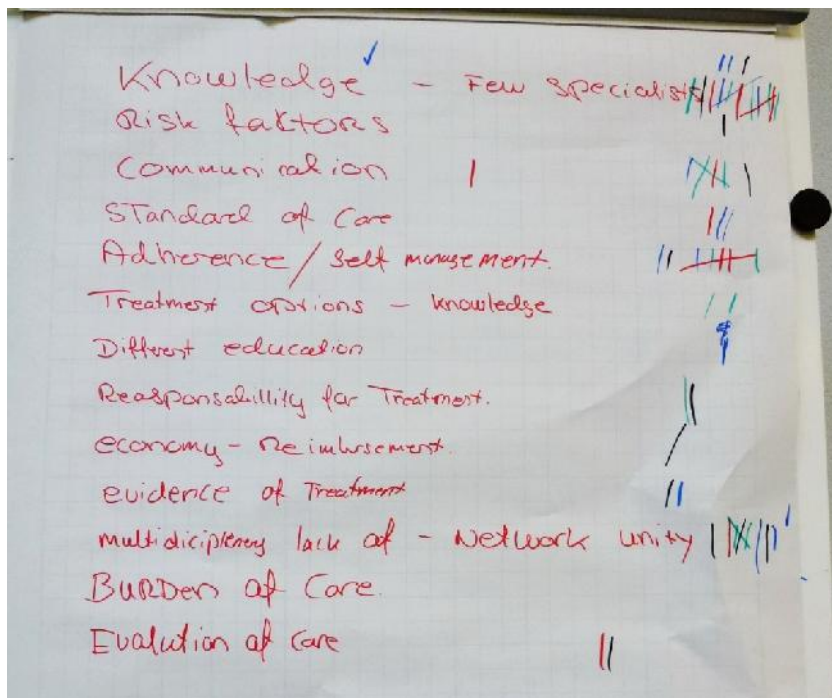 Knowledge - Few specialists
Risk faktors
Communication
Standard of Care
Adherence / Self management.
Treatment options - knowledge
Different education
Reasponsabillity for Treatment.
economy - Reimbursement.
evidence of Treatment
multidiciplenary lack of - Network unity
Burden of Care.
Evalution of Care